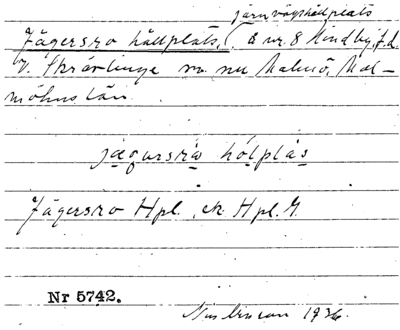 järnvägshållplats
Jägersro hållplats, å nr 8 Hindby, f.d.
V. Skrävlinge sn nu Malmö, Mal-
möhus län.
jæguršrȧ hólplȧs
Jägersro Hpl., ek Hpl. G.
Nr 5742.
1936